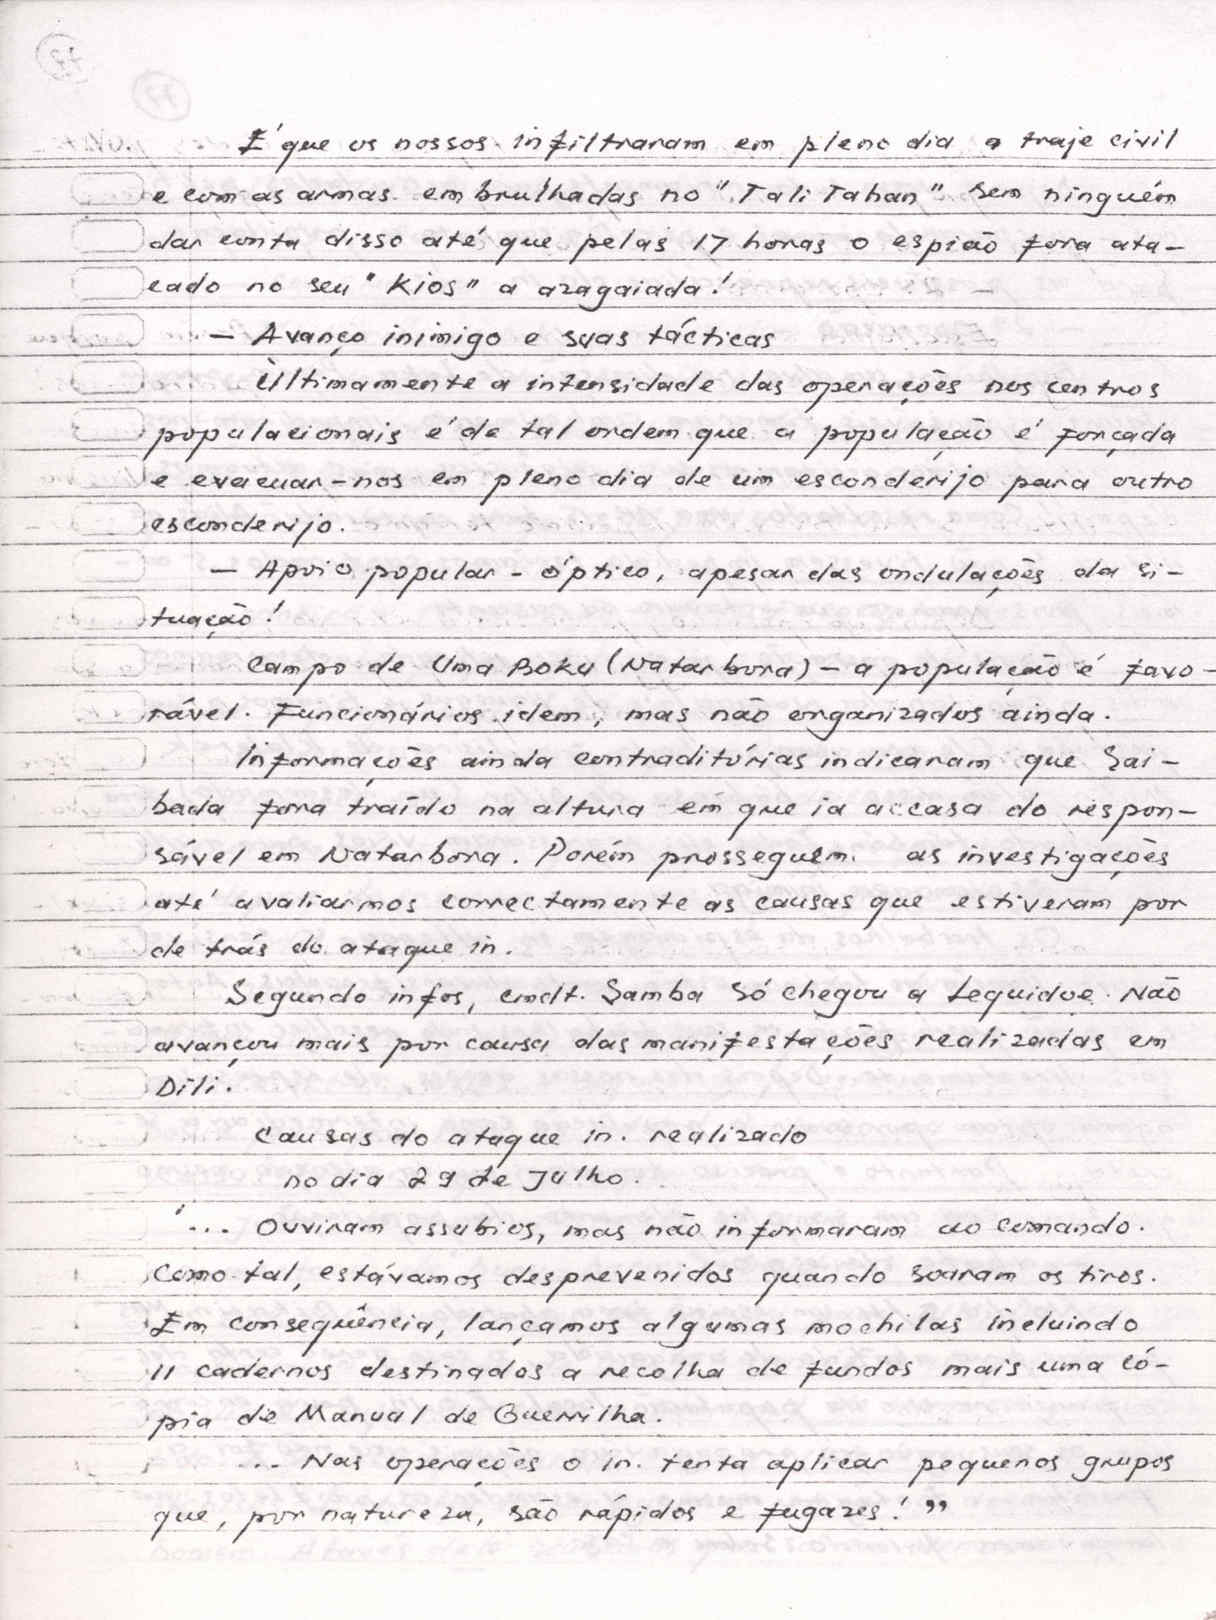 É que os nossos infiltraram em pleno dia a traje civil
e com as armas embrulhadas no "Tali Tahan" sem ninguém
dar conta disso até que pelas 17 horas o espião fora ata-
cado no seu "Kios" a azagaiada!
— Avanço inimigo e suas tácticas
Ùltimamente a intensidade das operações nos centros
populacionais é de tal ordem que a população é forçada
e evacuar-nos em pleno dia de um esconderijo para outro
esconderijo.
— Apoio popular - óptico, apesar das ondulações da si-
tuação!
Campo de Uma Boku (Natarbora) — a população é favo-
rável. Funcionários idem, mas não organizados ainda.
Informações ainda contraditórias indicaram que Sai-
bada fora traído na altura em que ia a casa do respon-
sável em Natarbora. Porém prosseguem as investigações
até avaliarmos correctamente as causas que estiveram por
de trás do ataque in.
Segundo infos, cmdt. Samba só chegou a Lequidoe. Não
avançou mais por causa das manifestações realizadas em
Dili.
Causas do ataque in. realizado
no dia 29 de Julho.
"... Ouviram assubios, mas não informaram ao comando.
Como tal, estávamos desprevenidos quando soaram os tiros.
Em consequência, lançamos algumas mochilas incluindo
11 cadernos destinados a recolha de fundos mais uma có-
pia de Manual de Guerrilha.
... Nas operações o in. tenta aplicar pequenos grupos
que, por natureza, são rápidos e fugazes!"